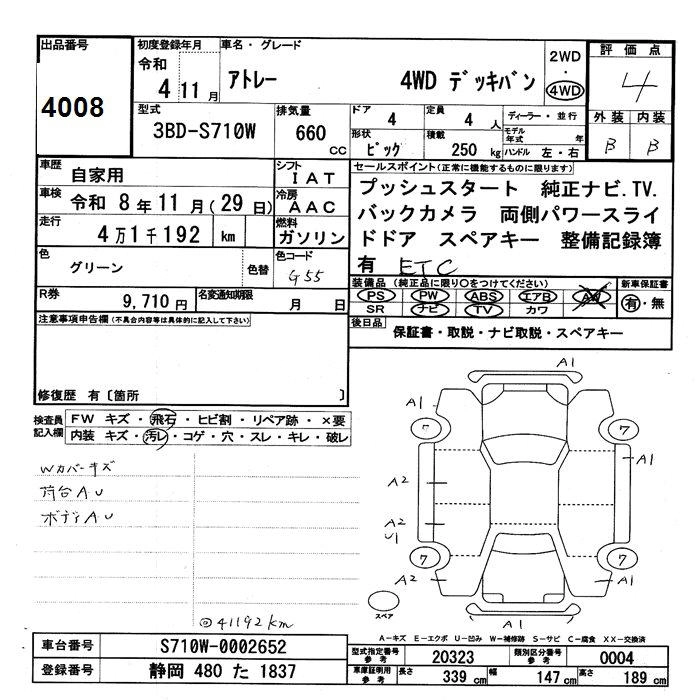 出品番号
4008
初度登録年月
令和
4 11 月
車名・グレード
アトレー 4WD デッキバン
2WD
・
4WD
評価点
4
外装 内装
B B
型式
3BD-S710W
排気量
660 CC
ドア
4
定員
4 人
ディーラー・並行
形状
ピック
積載
250 kg
モデル年式 年
ハンドル 左・右
車歴
自家用
シフト
IAT
車検
令和 8年11月(29日)
冷房
AAC
走行
4万1千192 km
燃料
ガソリン
色
グリーン
色替
色コード
G55
R券
9,710円
名変通知期限
月 日
セールスポイント(正常に機能するものに限ります)
プッシュスタート 純正ナビ.TV.
バックカメラ 両側パワースライ
ドドア スペアキー 整備記録簿
有 ETC
装備品 (純正品に限り○をつけてください)
PS PW ABS エアB AW
SR ナビ TV カワ
新車保証書
有・無
後日品
保証書・取説・ナビ取説・スペアキー
注意事項申告欄(不具合内容等は具体的に記入して下さい)
修復歴 有〔箇所 〕
検査員記入欄
FW キズ・飛石・ヒビ割・リペア跡・×要
内装 キズ・汚レ・コゲ・穴・スレ・キレ・破レ
Wカバーキズ
荷台AU
ボディAU
@41192km
A1
A1
7 7
A1
A2
A2
U1
7 7
A2 A1
A1
スペア
A−キズ E−エクボ U−凹み W−補修跡 S−サビ C−腐食 XX−交換済
車台番号
S710W-0002652
登録番号
静岡 480 た 1837
型式指定番号
参考
20323
類別区分番号
参考
0004
車庫証明用
参考
長さ 339 cm 幅 147 cm 高さ 189 cm